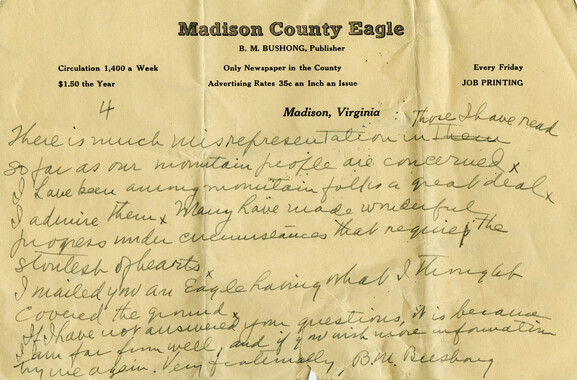 Madison County Eagle
B. M. BUSHONG, Publisher
Circulation 1,400 a Week Only Newspaper in the County Every Friday
$1.50 the Year Advertising Rates 35c an Inch an Issue JOB PRINTING
4 Madison, Virginia : Those I have read
There is much misrepresentation in them
so far as our mountain people are concerned x
I have been among mountain folks a great deal x
I admire them x Many have made wonderful
progress under circumstances that require the
stoutest of hearts x
I mailed you an Eagle having what I thought
covered the ground x
If I have not answered your questions, it is because
I am far from well, and if you wish more information
try me again. Very fraternally, B. M. Bushong